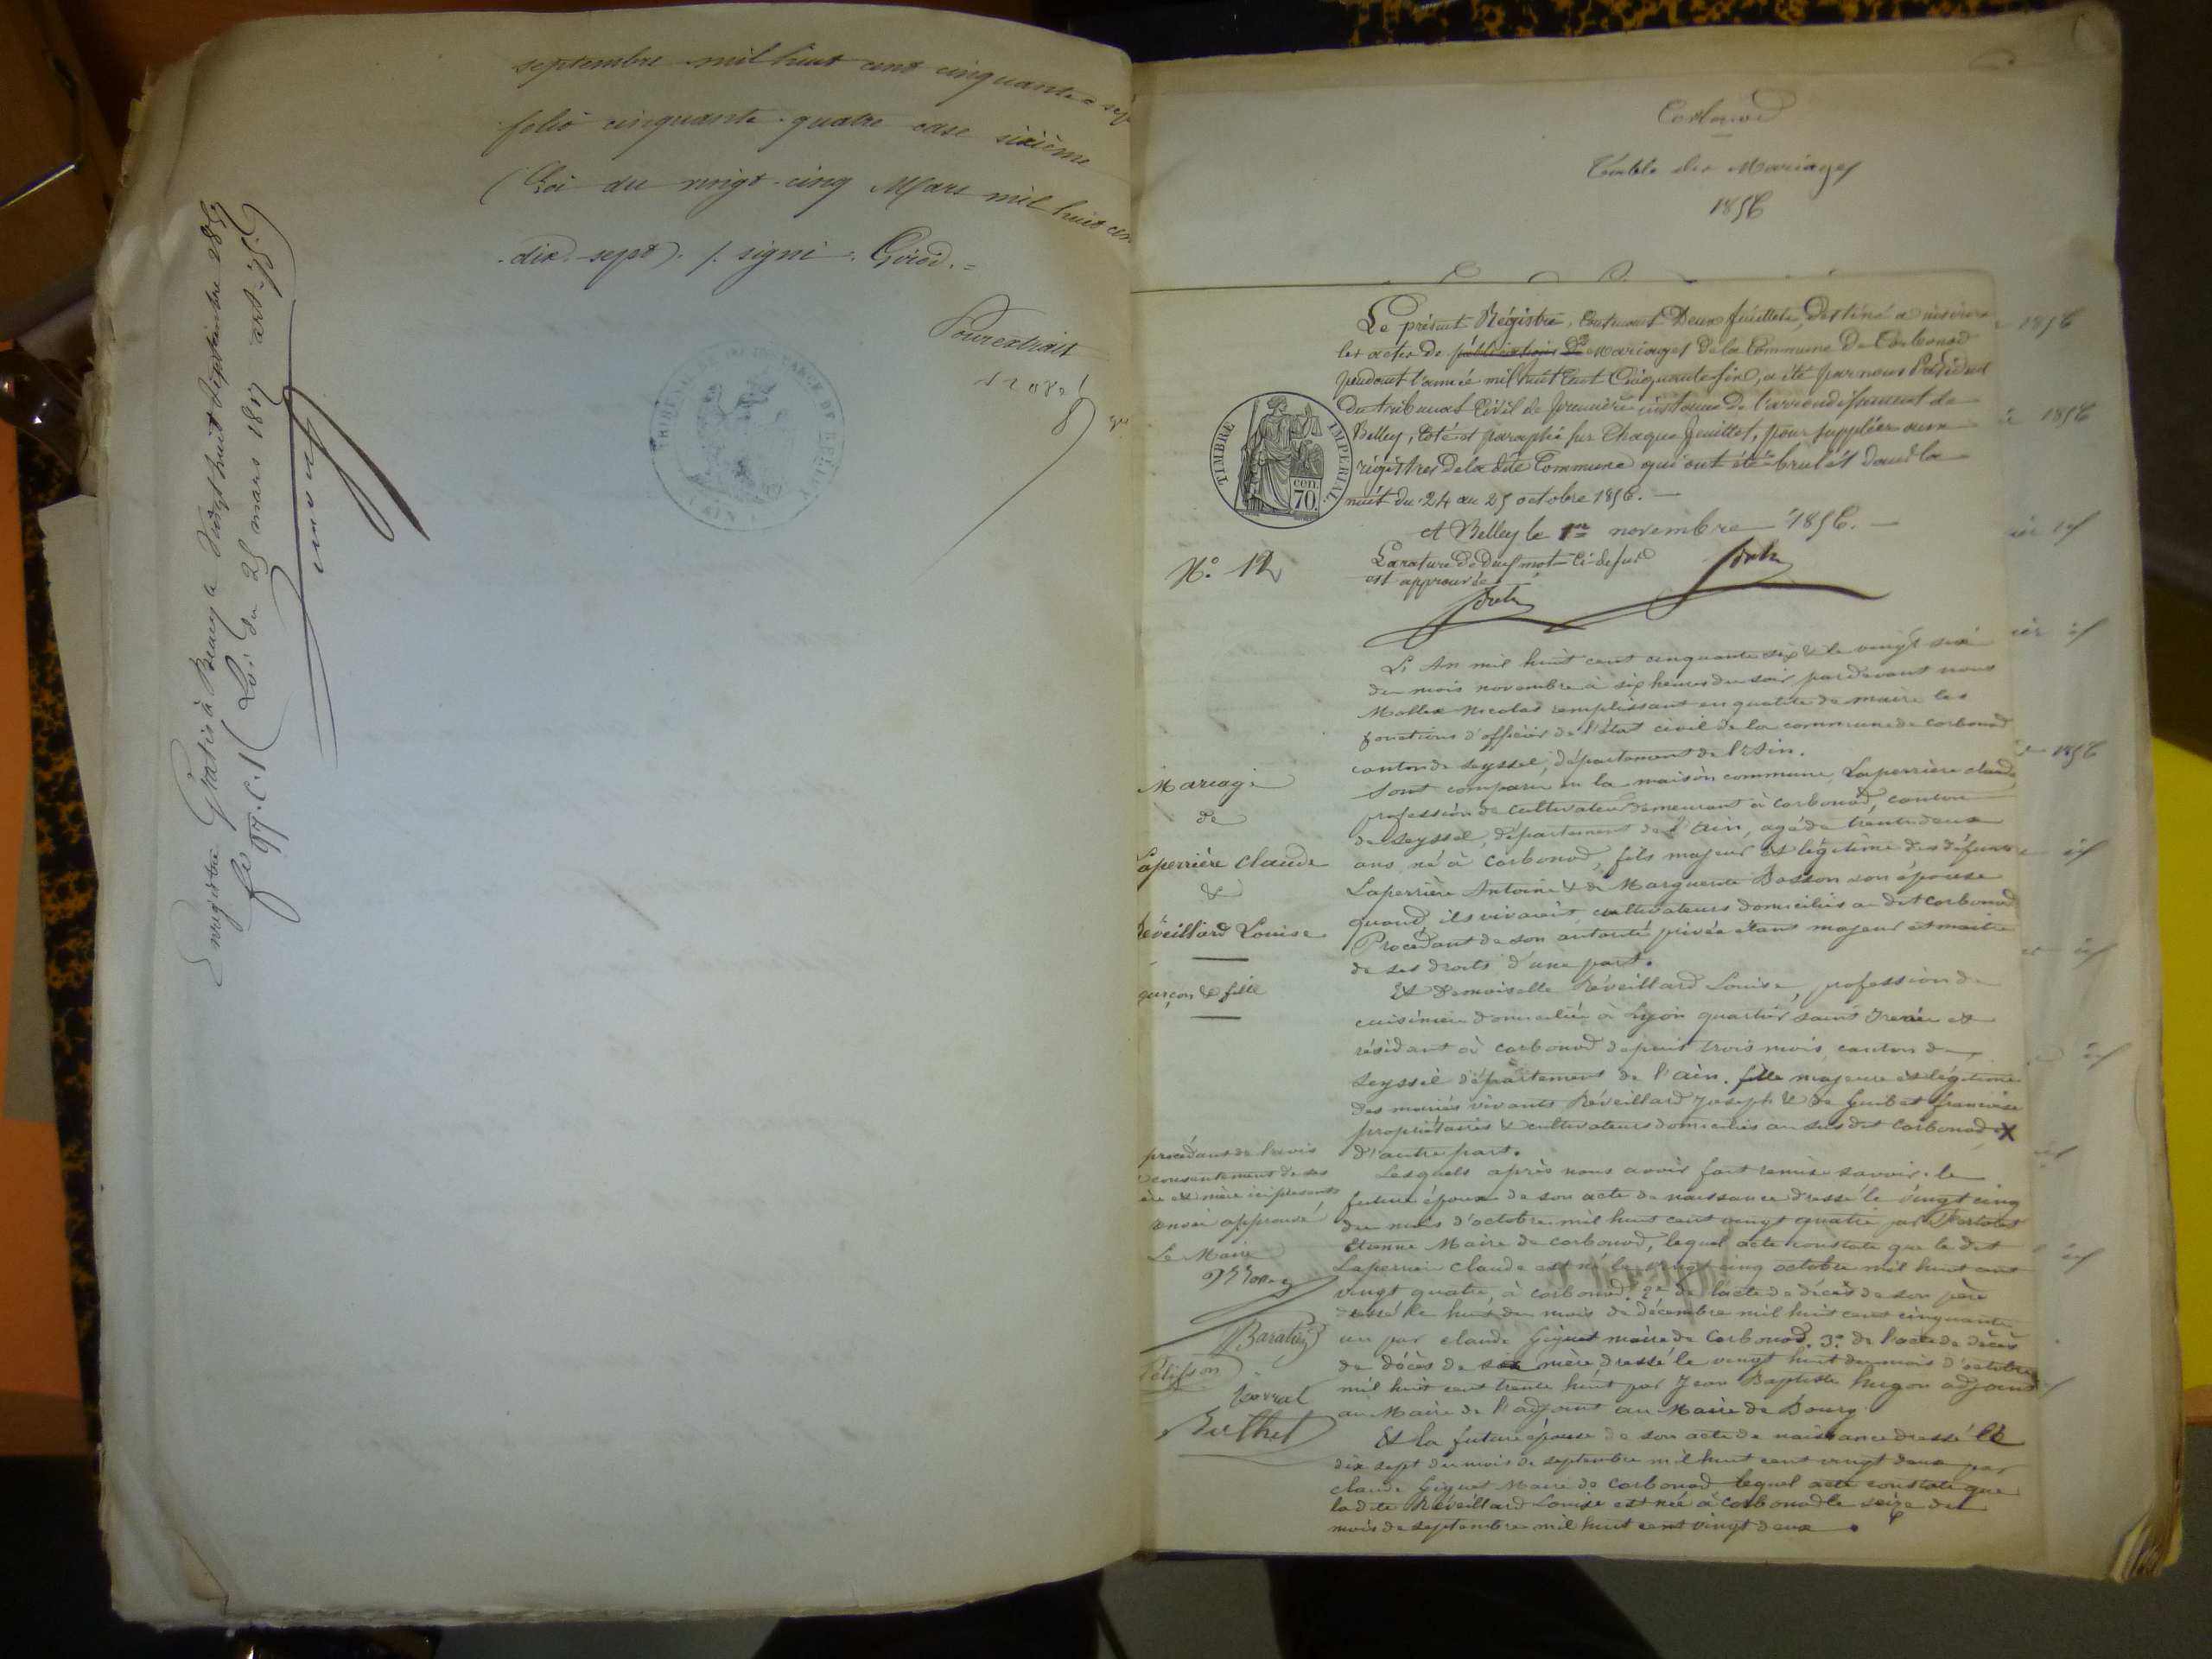 septembre mil huit cent cinquante-sept
folio cinquante-quatre case sixième
(Loi du vingt-cinq Mars mil huit cen
dix-sept). /. signé: Girod.=
Pour extrait
Enregistré Gratis à Belley le vingt huit Septembre 1857
fo 97. C. 1 (Loi du 25 mars 1817 art. 75)
Corbonod
Table des Mariages
1856
Le présent Régistre, Contenant Deux feuillets, destiné a inscrire
les actes de publications de Mariages De la Commune De Corbonod
pendant l'année mil huit Cent Cinquante six, a été par nous Président
du tribunal Civil de première instance de l'arrondissement de
Belley, Coté et paraphé sur Chaque feuillet, pour suppléer aux
régistres de la dite Commune qui ont été brulés dans la
nuit du 24 au 25 octobre 1856. —
A Belley le 1er novembre 1856. —
La rature de deux mots ci-dessus
est approuvée
TIMBRE IMPERIAL
cen.
70.
N.º 12
L'An mil huit cent cinquante six & le vingt six
du mois novembre à six heures du soir pardevant nous
Mollex Nicolas remplissant en qualité de maire les
fonctions d'officier de l'état civil de la commune de corbonod
canton de Seyssel, département de l'Ain.
Sont comparu en la maison commune, Laperrière claude
profession de cultivateur demeurant à corbonod, canton
de Seyssel, département de l'ain, agé de trente deux
ans né à Corbonod, fils majeur et légitime des défunts
Laperrière Antoine & de Marguerite Bosson son épouse
quand ils vivaient, cultivateurs domiciliés au dit corbonod
Procédant de son autorité privée étant majeur et maitre
de ses droits d'une part.
Et Demoiselle Réveillard Louise, profession de
cuisinière domiciliée à Lyon quartier saint Irenée et
résidant à corbonod depuis trois mois, canton de
Seyssel département de l'ain. fille majeure et légitime
des mariés vivants Réveillard Joseph & de Guibet francoise
propriétaires & cultivateurs domiciliés au sus dit corbonod X
d'autre part.
Lesquels après nous avoir fait remise savoir. le
future époux de son acte de naissance dressé le vingt cinq
du mois d'octobre mil huit cent vingt quatre par
Etienne Maire de corbonod, lequel acte constate que le dit
Laperrière Claude est né le vingt cinq octobre mil huit cent
vingt quatre, à corbonod. 2º de l'acte de décès de son père
dressé le huit du mois de décembre mil huit cent cinquante
un par claude Giguet maire de Corbonod. 3º de l'acte de décès
de décès de sa mère dressé le vingt huit du mois d'octobre
mil huit cent trente huit par Jean Baptiste hugon adjoint
au Maire de l'adjoint au Maire de Bourg.
Et la future épouse de son acte de naissance dressé le
dix sept du mois de septembre mil huit cent vingt deux par
claude Giguet Maire de Corbonod lequel acte constate que
ladite Réveillard Louise est née à Corbonod le seize du
mois de septembre mil huit cent vingt deux
Mariage
de
Laperrière claude
&
Réveillard Louise
garçon & fille
procédant de l'avis
consentement de ses
ère et mère ici présents
renvoi approuvé
Le Maire
Pélisson
Berthet
1856
1856
1856